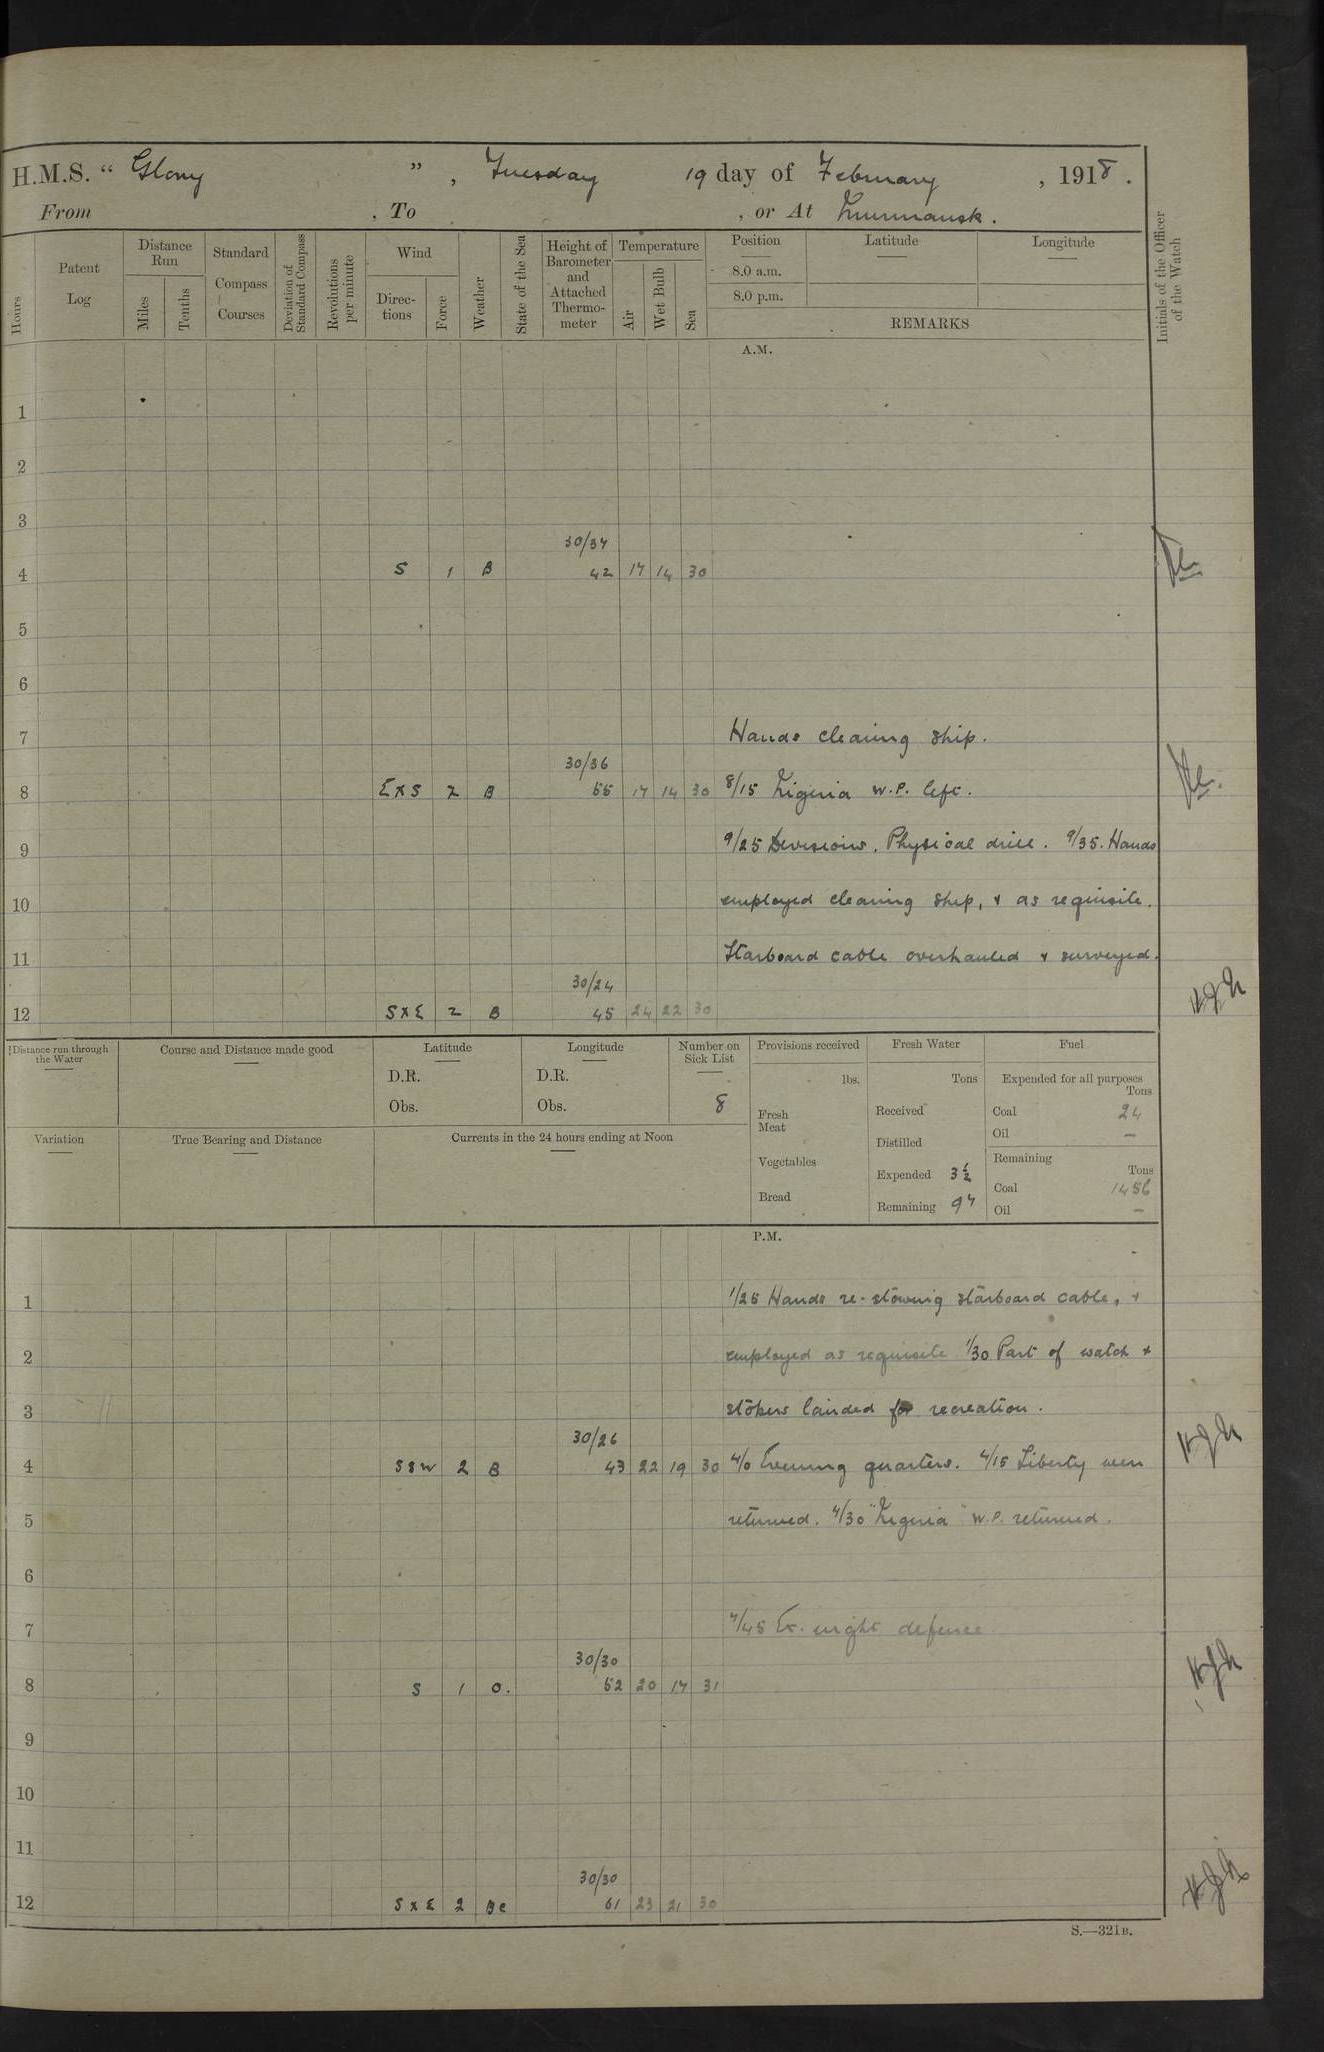 H.M.S. " Glory ", Tuesday 19 day of February, 1918.
From , To , or At Murmansk.
Hours
Patent Log
Distance Run
Miles
Tenths
Standard Compass Courses
Deviation of Standard Compass
Revolutions per minute
Wind
Directions
Force
Weather
State of the Sea
Height of Barometer and Attached Thermometer
Temperature
Air
Wet Bulb
Sea
Position
8.0 a.m.
8.0 p.m.
Latitude
Longitude
REMARKS
Initials of the Officer of the Watch
A.M.
1
2
3
30/34
4 S 1 B 42 17 14 30
5
6
7 Hands cleaning ship.
30/36
8 E x S 2 B 55 17 14 30 8/15 Nigeria W.P. left.
9 9/25 Divisions. Physical drill. 9/35. Hands
10 employed cleaning ship, & as requisite.
11 Starboard cable overhauled & surveyed.
30/24
12 S x E 2 B 45 24 22 30
Distance run through the Water
Course and Distance made good
Latitude
D.R.
Obs.
Longitude
D.R.
Obs.
Number on Sick List
8
Provisions received
lbs.
Fresh Meat
Vegetables
Bread
Fresh Water
Tons
Received
Distilled
Expended 3 1/2
Remaining 97
Fuel
Expended for all purposes
Tons
Coal 24
Oil –
Remaining
Tons
Coal 1456
Oil –
Variation
True Bearing and Distance
Currents in the 24 hours ending at Noon
P.M.
1 1/25 Hands re-stowing starboard cable, &
2 employed as requisite 1/30 Part of watch &
3 stokers landed for recreation.
30/26
4 SSW 2 B 43 22 19 30 4/0 Evening quarters. 4/15 Liberty men
5 returned. 4/30 "Nigeria" W.P. returned.
6
7 7/45 Ex. night defence
30/30
8 S 1 O. 52 20 17 31
9
10
11
30/30
12 S x E 2 Bc 61 23 21 30
S.—321B.